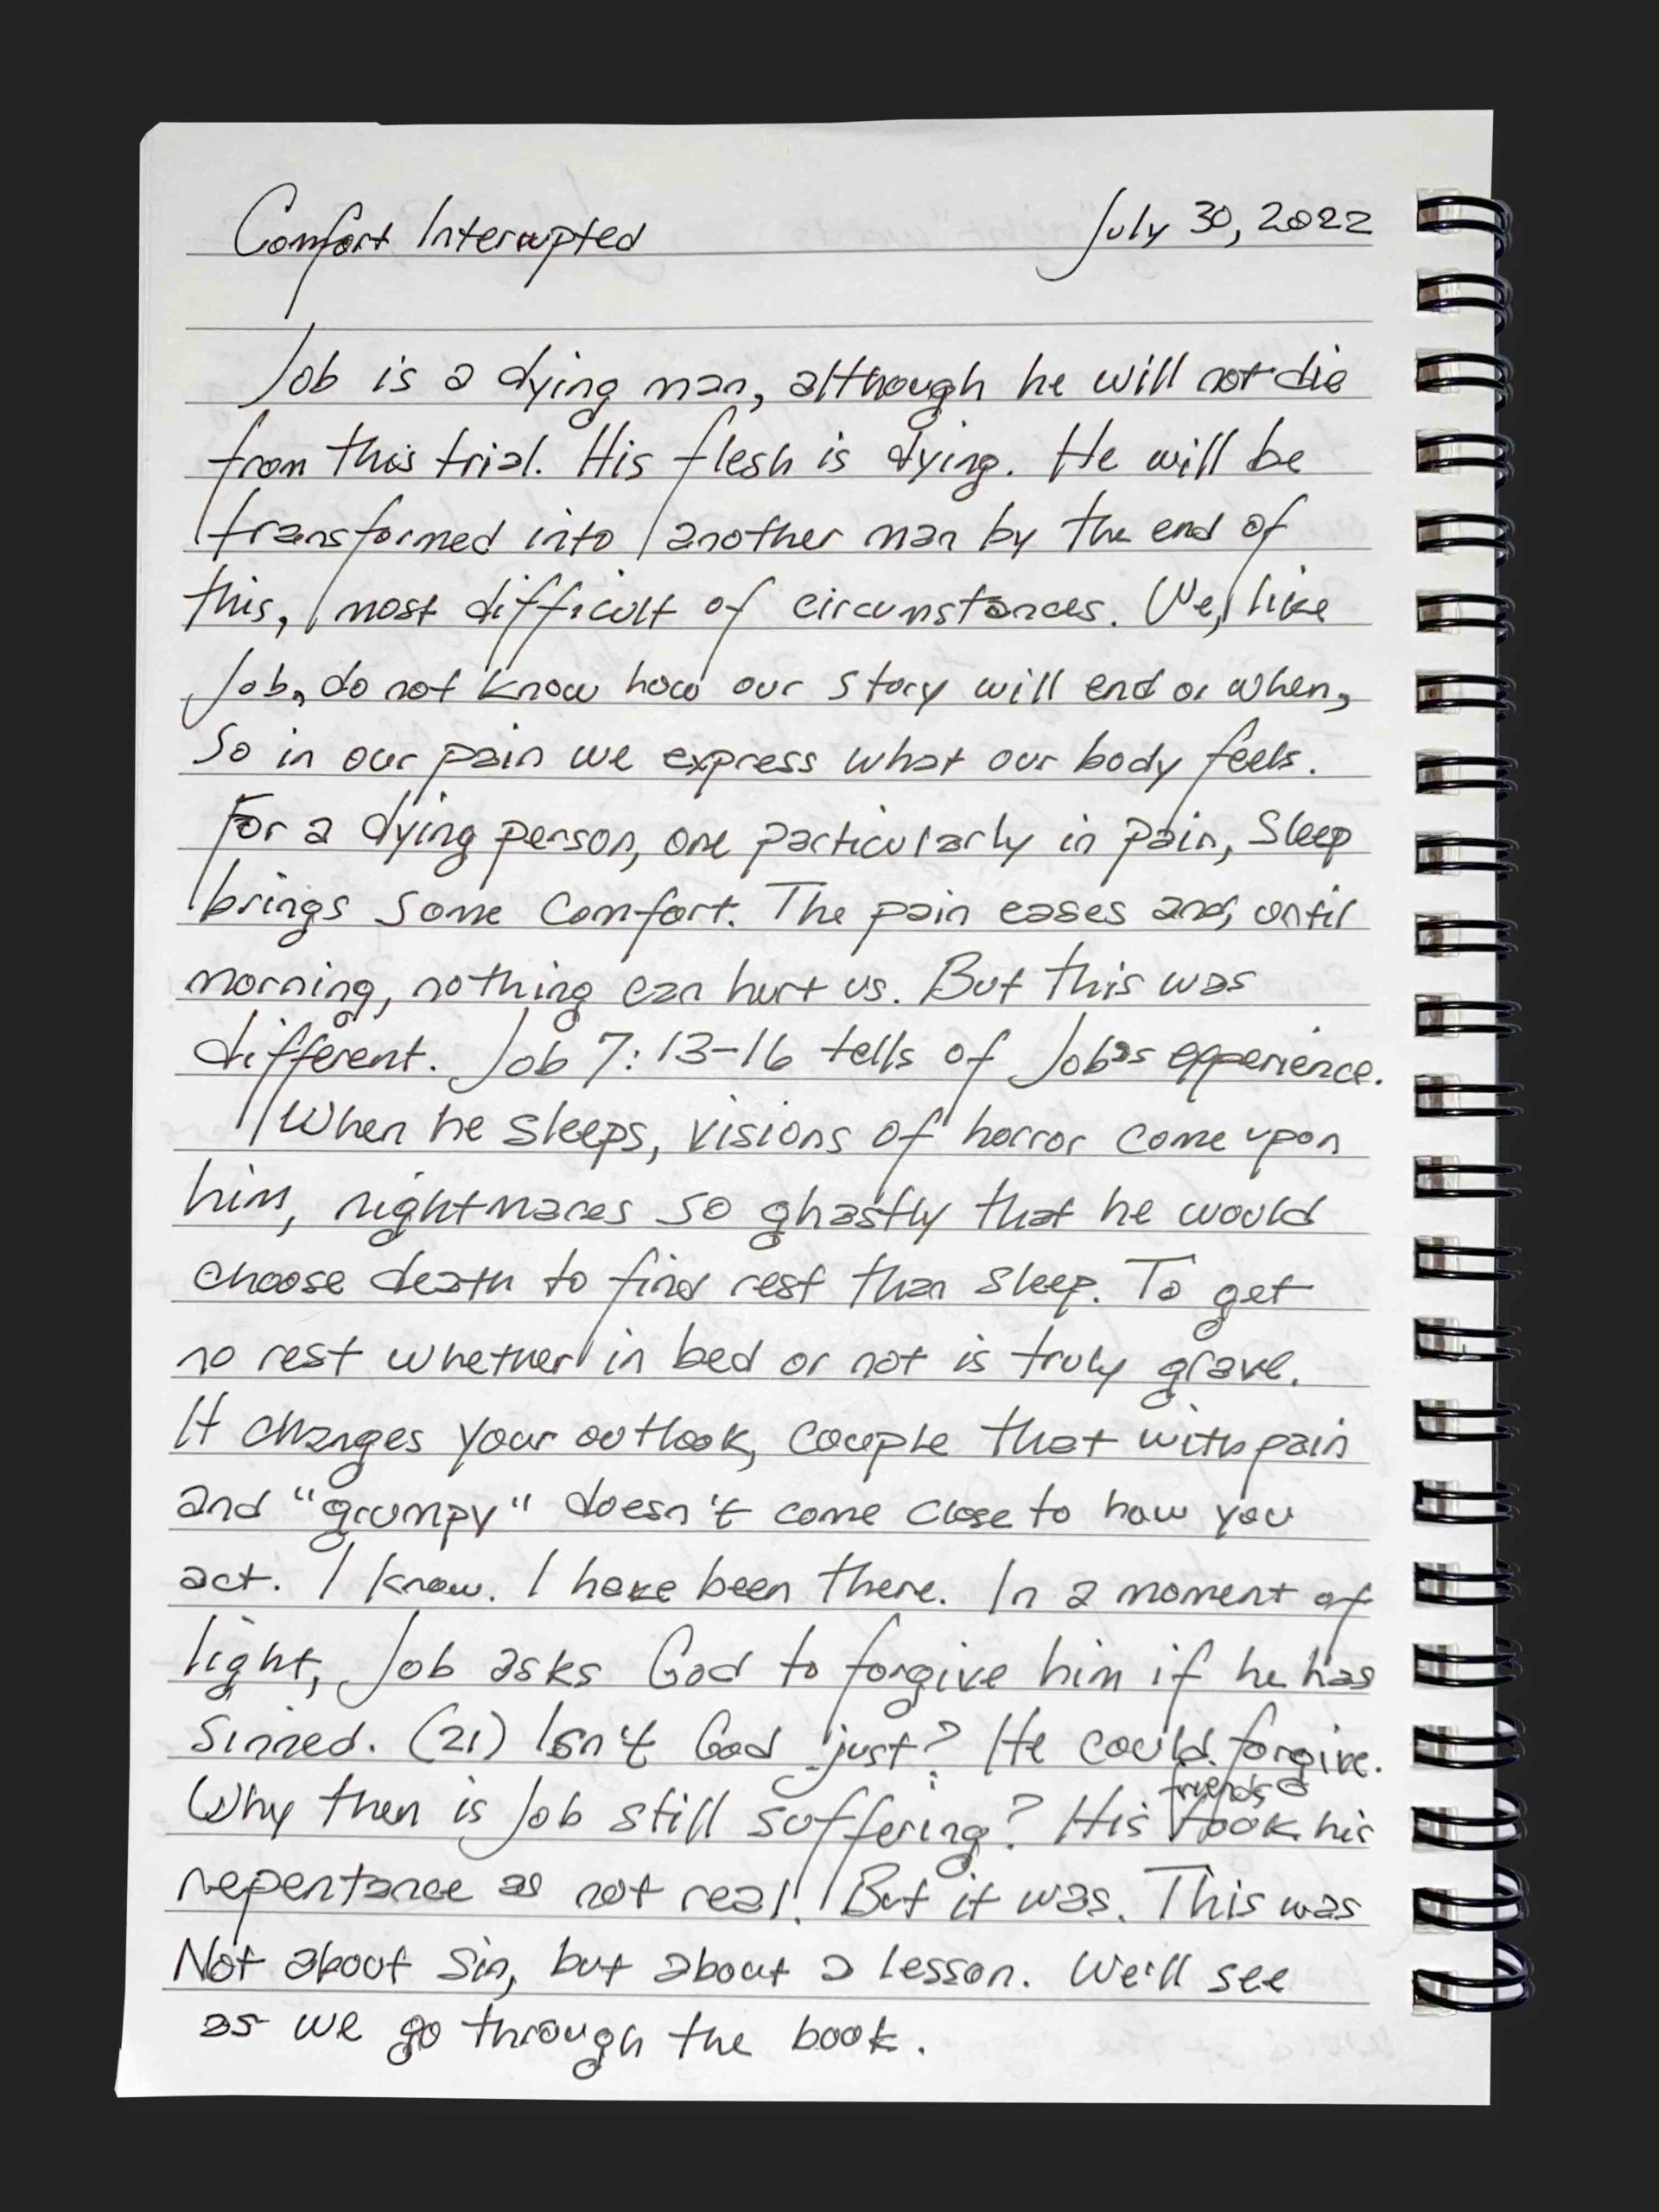 Comfort Interrupted July 30, 2022
Job is a dying man, although he will not die
from this trial. His flesh is dying. He will be
transformed into another man by the end of
this, most difficult of circumstances. We, like
Job, do not know how our story will end or when,
So in our pain we express what our body feels.
For a dying person, one particularly in pain, Sleep
brings some comfort. The pain eases and, until
morning, nothing can hurt us. But this was
different. Job 7:13-16 tells of Job's experience.
When he sleeps, visions of horror come upon
him, nightmares so ghastly that he would
choose death to find rest than sleep. To get
no rest whether in bed or not is truly grave.
It changes your outlook, couple that with pain
and "grumpy" doesn't come close to how you
act. I know. I have been there. In a moment of
light, Job asks God to forgive him if he has
Sinned. (21) Isn't God just? He could forgive.
Why then is Job still suffering? His friends took his
repentance as not real. But it was. This was
Not about sin, but about a lesson. We'll see
as we go through the book.